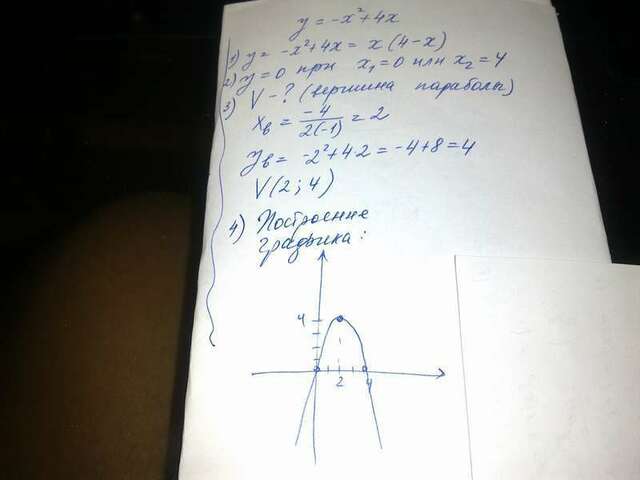 y = -x² + 4x
1) y = -x² + 4x = x(4-x)
2) y = 0 при x₁ = 0 или x₂ = 4
3) V - ? (вершина параболы)
xв = -4/2(-1) = 2
yв = -2² + 4·2 = -4 + 8 = 4
V(2; 4)
4) Построение
графика:
4
2 4